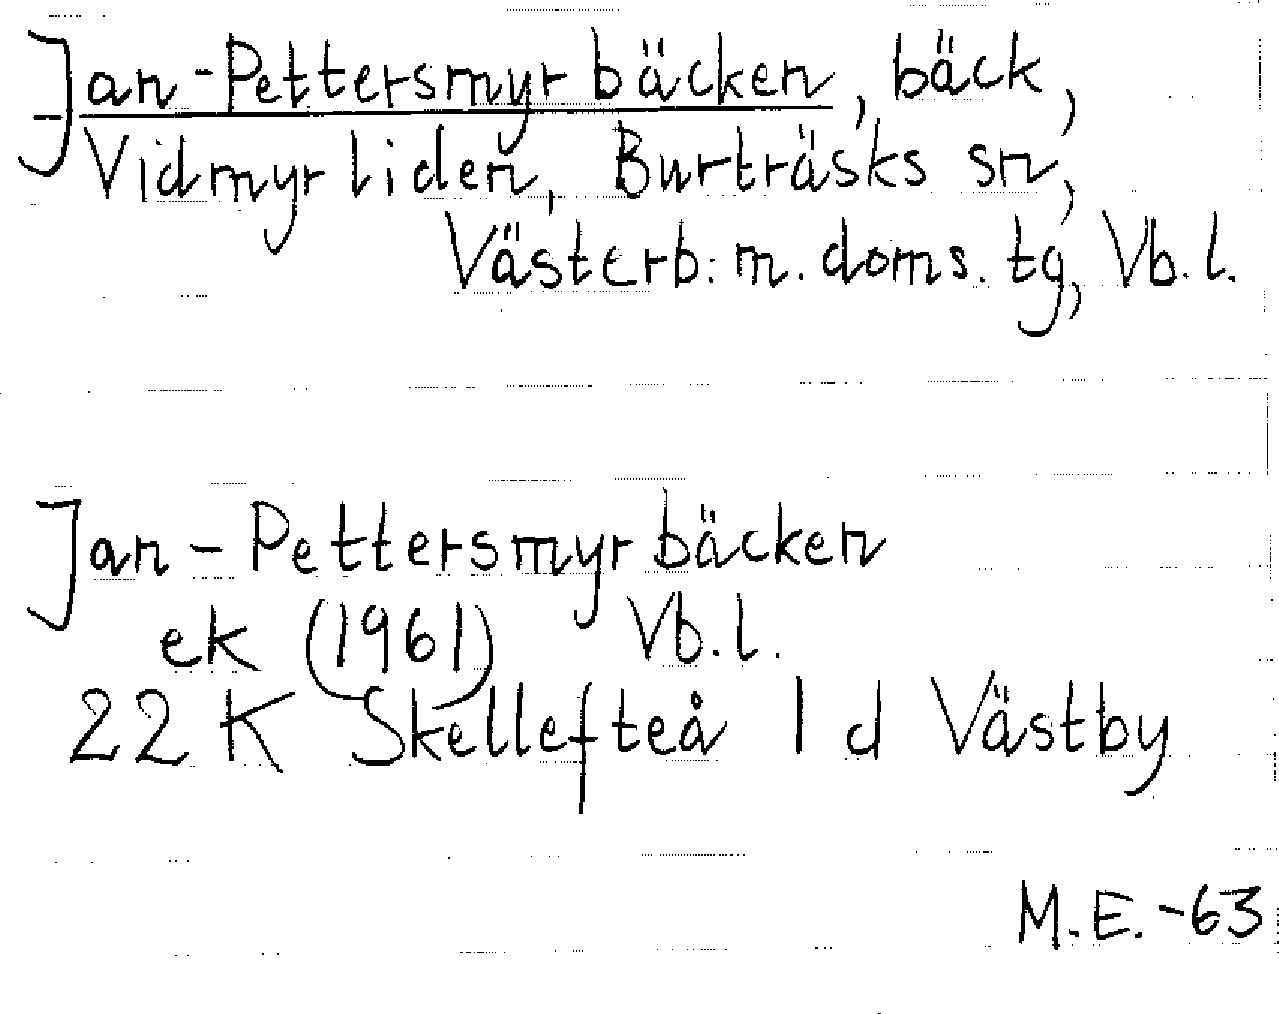 Jan-Pettersmyrbäcken, bäck,
Vidmyrliden, Burträsks sn,
Västerb:m. doms. tg, Vb. l.
Jan-Pettersmyrbäcken
ek (1961) Vb. l.
22 K Skellefteå 1 d Västby
M.E.-63